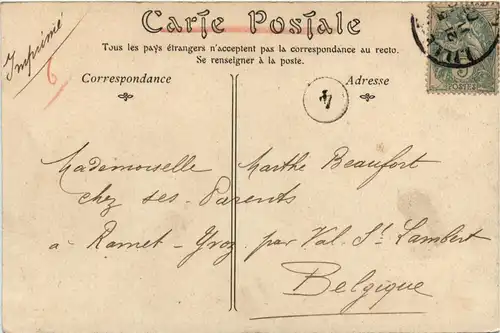 Imprimé
6
Carte Postale
Tous les pays étrangers n'acceptent pas la correspondance au recto.
Se renseigner à la poste.
Correspondance
Adresse
4
POSTES
Mademoiselle Marthe Beaufort
chez ses Parents
a Ramet-Yvoz par Val. St Lambert
Belgique